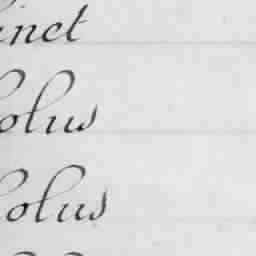 inet
olus
olus